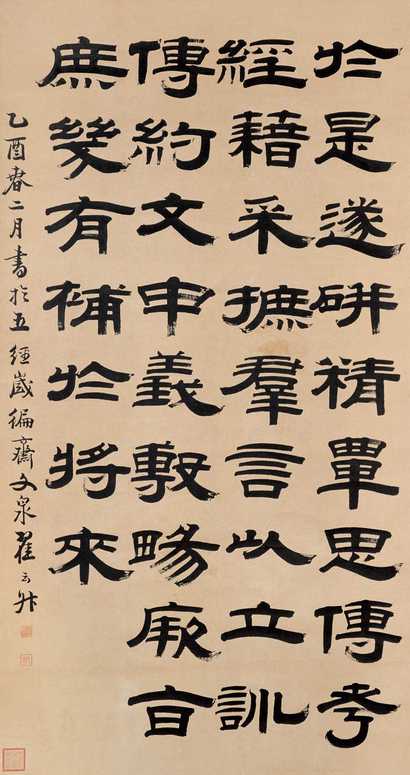 於是遂研精覃思傳考
經藉采摭羣言以立訓
傳約文申義敷暢厥旨
庶幾有補於將來
乙酉春二月書於五經歲徧齋文泉翟云升